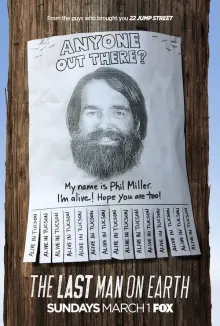 From the guys who brought you 22 JUMP STREET
ANYONE
OUT THERE?
My name is Phil Miller.
I'm alive! Hope you are too!
ALIVE IN TUCSON
ALIVE IN TUCSON
ALIVE IN TUCSON
ALIVE IN TUCSON
ALIVE IN TUCSON
ALIVE IN TUCSON
ALIVE IN TUCSON
ALIVE IN TUCSON
ALIVE IN TUCSON
ALIVE IN TUCSON
ALIVE IN TUCSON
ALIVE IN TUCSON
THE LAST MAN ON EARTH
SUNDAYS MARCH 1 FOX